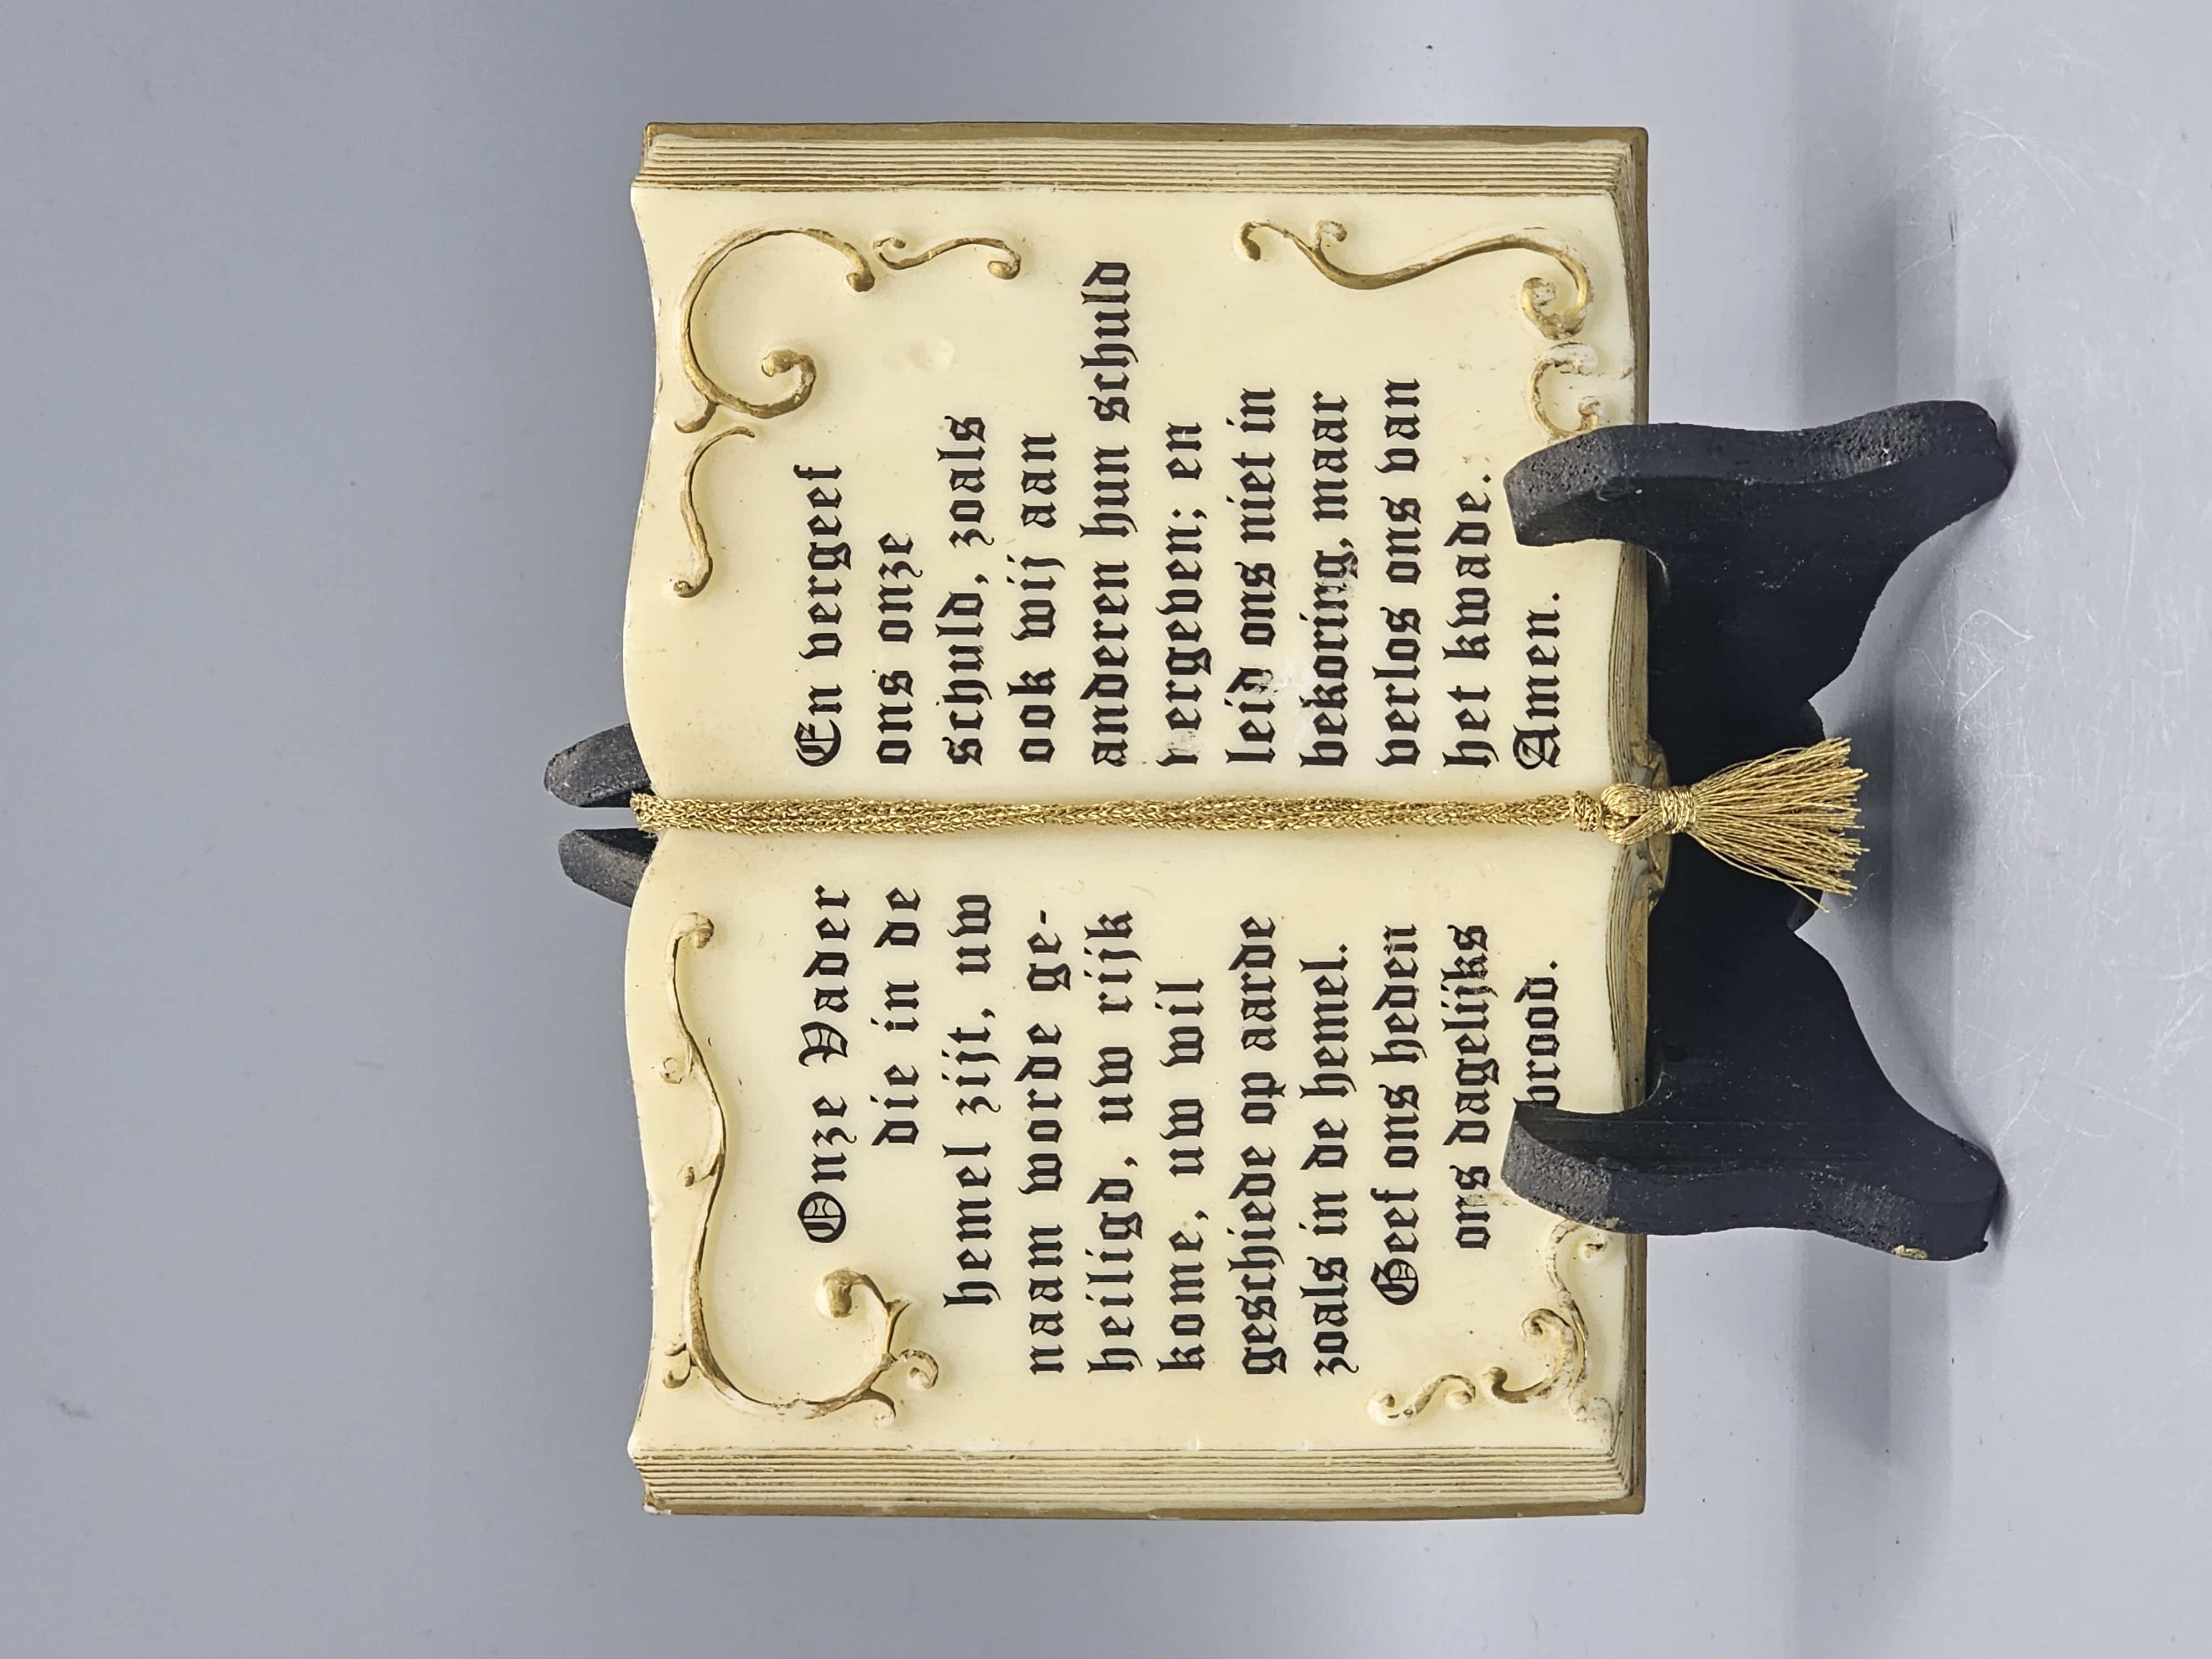 Onze Vader
die in de
hemel zijt, uw
naam worde ge-
heiligd, uw rijk
kome, uw wil
geschiede op aarde
zoals in de hemel.
Geef ons heden
ons dagelijks
brood.
En vergeef
ons onze
schuld, zoals
ook wij aan
anderen hun schuld
vergeven; en
leid ons niet in
bekoring, maar
verlos ons van
het kwade.
Amen.